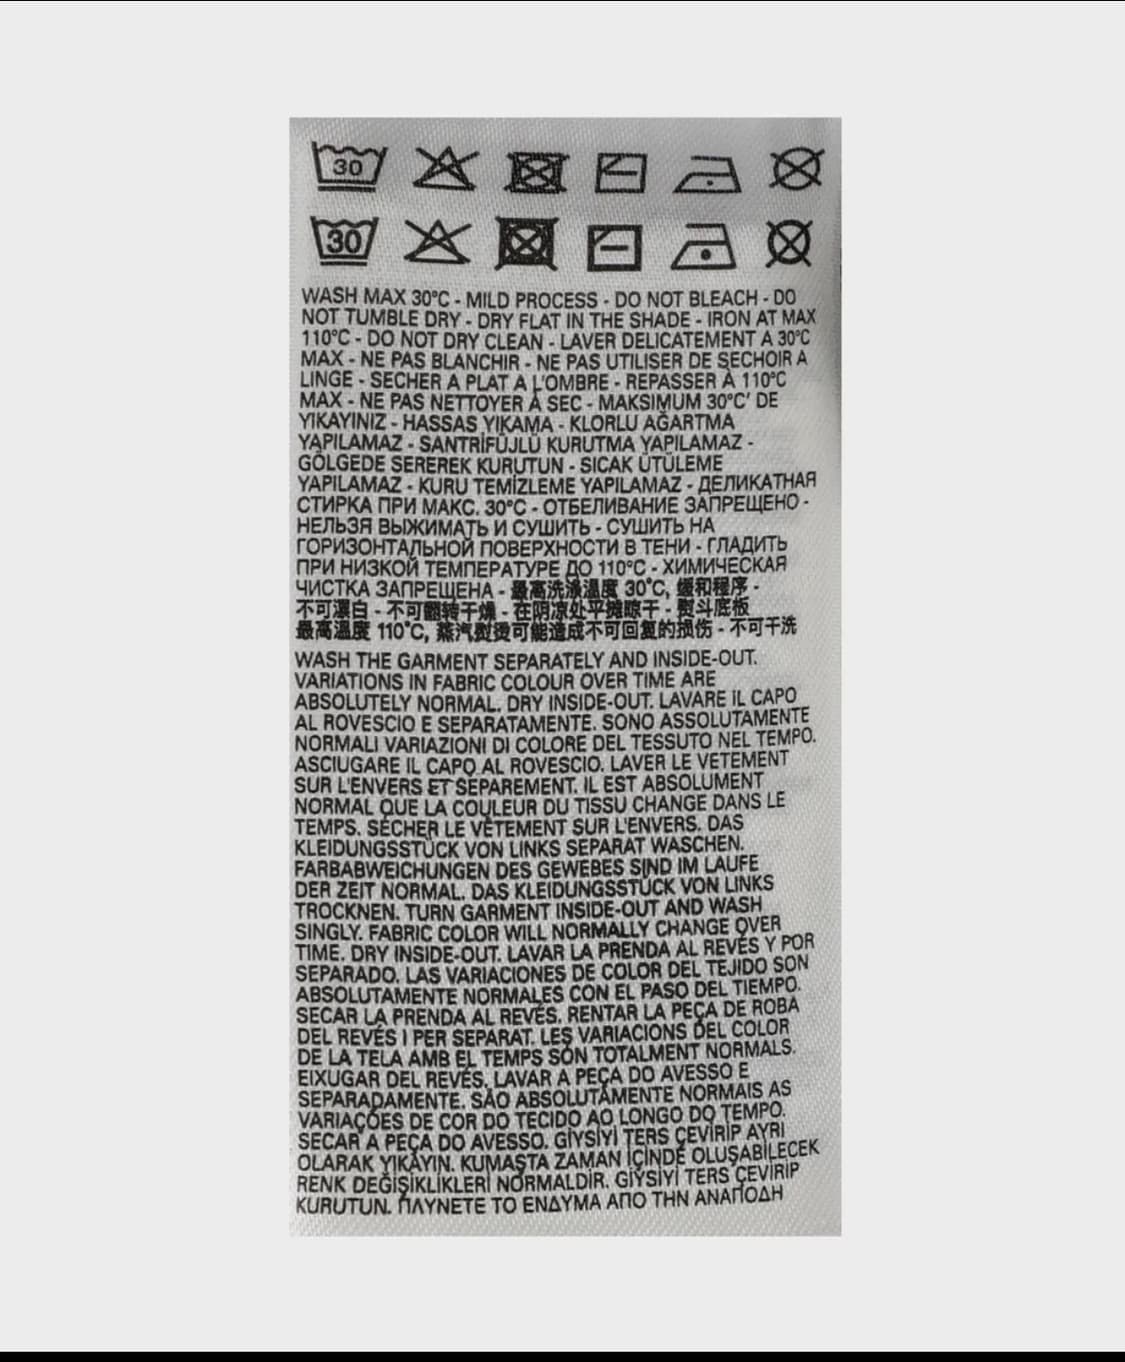 30
30
WASH MAX 30°C - MILD PROCESS - DO NOT BLEACH - DO
NOT TUMBLE DRY - DRY FLAT IN THE SHADE - IRON AT MAX
110°C - DO NOT DRY CLEAN - LAVER DELICATEMENT A 30°C
MAX - NE PAS BLANCHIR - NE PAS UTILISER DE SECHOIR A
LINGE - SECHER A PLAT A L'OMBRE - REPASSER À 110°C
MAX - NE PAS NETTOYER À SEC - MAKSIMUM 30°C' DE
YIKAYINIZ - HASSAS YIKAMA - KLORLU AĞARTMA
YAPILAMAZ - SANTRİFÜJLÜ KURUTMA YAPILAMAZ -
GÖLGEDE SEREREK KURUTUN - SICAK ÜTÜLEME
YAPILAMAZ - KURU TEMİZLEME YAPILAMAZ - ДЕЛИКАТНАЯ
СТИРКА ПРИ МАКС. 30°C - ОТБЕЛИВАНИЕ ЗАПРЕЩЕНО -
НЕЛЬЗЯ ВЫЖИМАТЬ И СУШИТЬ - СУШИТЬ НА
ГОРИЗОНТАЛЬНОЙ ПОВЕРХНОСТИ В ТЕНИ - ГЛАДИТЬ
ПРИ НИЗКОЙ ТЕМПЕРАТУРЕ ДО 110°C - ХИМИЧЕСКАЯ
ЧИСТКА ЗАПРЕЩЕНА - 最高洗涤温度 30°C, 缓和程序 -
不可漂白 - 不可翻转干燥 - 在阴凉处平摊晾干 - 熨斗底板
最高温度 110°C, 蒸汽熨烫可能造成不可回复的损伤 - 不可干洗
WASH THE GARMENT SEPARATELY AND INSIDE-OUT.
VARIATIONS IN FABRIC COLOUR OVER TIME ARE
ABSOLUTELY NORMAL. DRY INSIDE-OUT. LAVARE IL CAPO
AL ROVESCIO E SEPARATAMENTE. SONO ASSOLUTAMENTE
NORMALI VARIAZIONI DI COLORE DEL TESSUTO NEL TEMPO.
ASCIUGARE IL CAPO AL ROVESCIO. LAVER LE VETEMENT
SUR L'ENVERS ET SEPAREMENT. IL EST ABSOLUMENT
NORMAL QUE LA COULEUR DU TISSU CHANGE DANS LE
TEMPS. SÉCHER LE VÊTEMENT SUR L'ENVERS. DAS
KLEIDUNGSSTÜCK VON LINKS SEPARAT WASCHEN.
FARBABWEICHUNGEN DES GEWEBES SIND IM LAUFE
DER ZEIT NORMAL. DAS KLEIDUNGSSTÜCK VON LINKS
TROCKNEN. TURN GARMENT INSIDE-OUT AND WASH
SINGLY. FABRIC COLOR WILL NORMALLY CHANGE OVER
TIME. DRY INSIDE-OUT. LAVAR LA PRENDA AL REVÉS Y POR
SEPARADO. LAS VARIACIONES DE COLOR DEL TEJIDO SON
ABSOLUTAMENTE NORMALES CON EL PASO DEL TIEMPO.
SECAR LA PRENDA AL REVÉS. RENTAR LA PEÇA DE ROBA
DEL REVÉS I PER SEPARAT. LES VARIACIONS DEL COLOR
DE LA TELA AMB EL TEMPS SÓN TOTALMENT NORMALS.
EIXUGAR DEL REVÉS. LAVAR A PEÇA DO AVESSO E
SEPARADAMENTE. SÃO ABSOLUTAMENTE NORMAIS AS
VARIAÇÕES DE COR DO TECIDO AO LONGO DO TEMPO.
SECAR A PEÇA DO AVESSO. GİYSİYİ TERS ÇEVİRİP AYRI
OLARAK YIKAYIN. KUMAŞTA ZAMAN İÇİNDE OLUŞABİLECEK
RENK DEĞİŞİKLİKLERİ NORMALDİR. GİYSİYİ TERS ÇEVİRİP
KURUTUN. ΠΛΥΝΕΤΕ ΤΟ ΕΝΔΥΜΑ ΑΠΟ ΤΗΝ ΑΝΑΠΟΔΗ